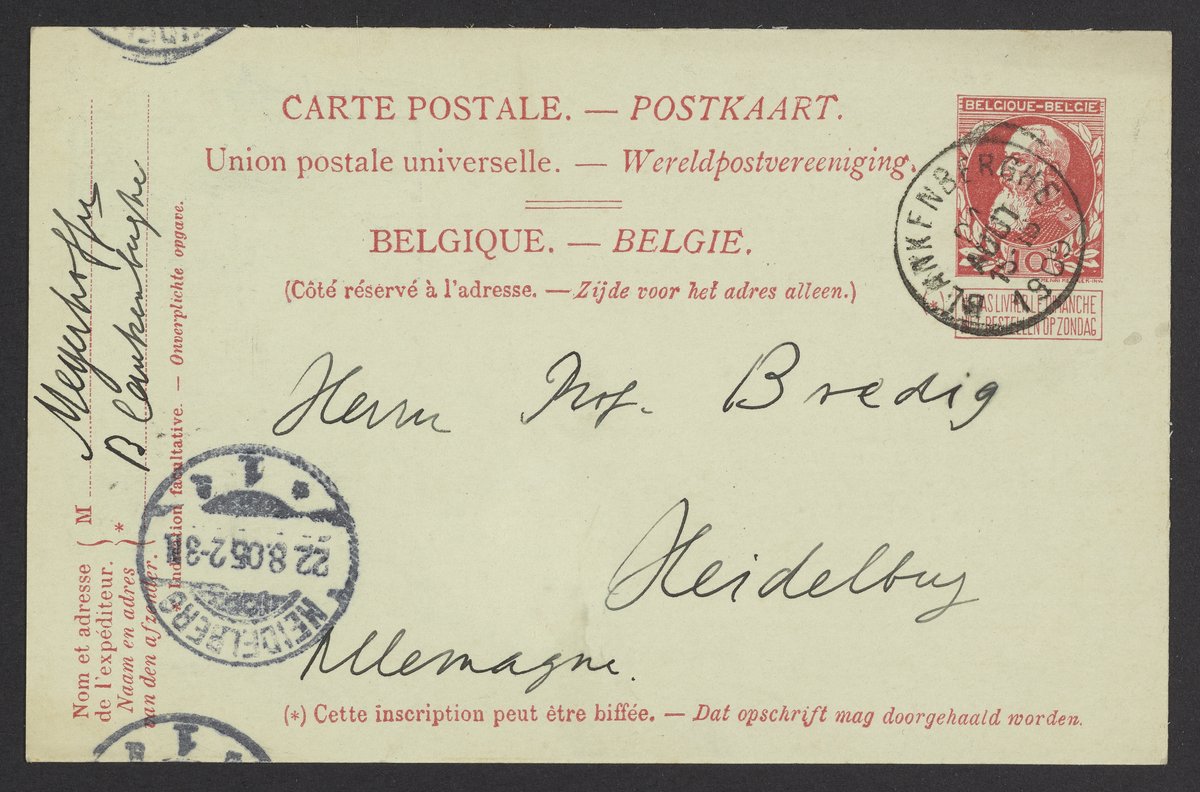 CARTE POSTALE. — POSTKAART.
Union postale universelle. — Wereldpostvereeniging.
BELGIQUE. — BELGIE.
(Côté réservé à l'adresse. — Zijde voor het adres alleen.)
BELGIQUE-BELGIE
10
BLANKENBERGHE
21
AOUT
1905
NE PAS LIVRER LE DIMANCHE
NIET BESTELLEN OP ZONDAG
Herrn Prof. Bredig
Heidelberg
Allemagne.
(*) Cette inscription peut être biffée. — Dat opschrift mag doorgehaald worden.
Nom et adresse
de l'expéditeur.
Naam en adres
van den afzender.
M
*
Meyerhoffer
Blankenberghe
* Indication facultative. — Onverplichte opgave.
HEIDELBERG
22.8.05.2-3N
* 1 a
1